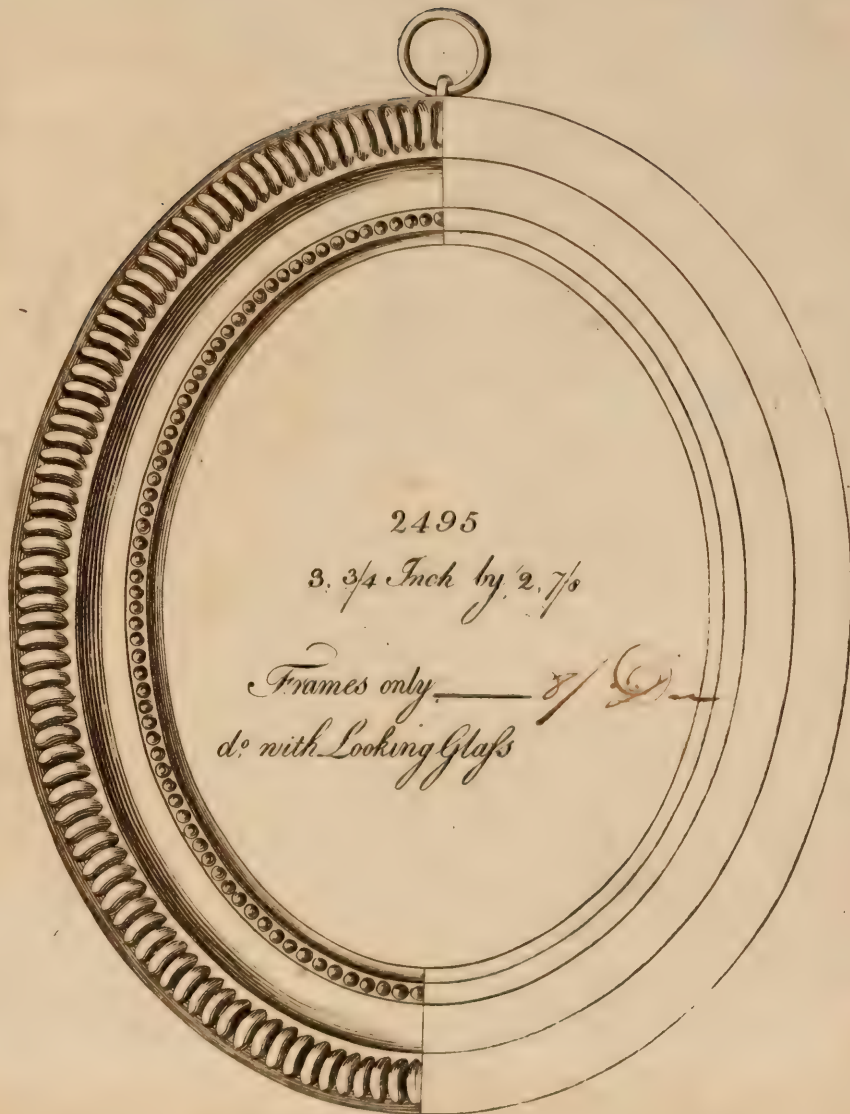 2495
3. 3/4 Inch by 2. 7/8
Frames only 8/
do. with Looking Glaſs